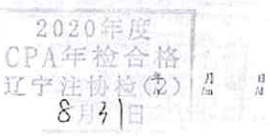 2020年度
CPA年检合格
辽宁注协检(2) 月 日
8月31日